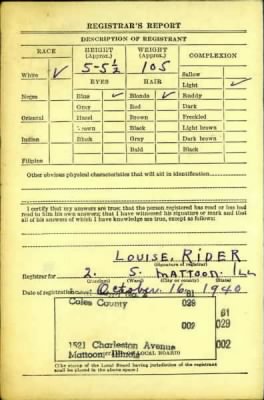 REGISTRAR'S REPORT
DESCRIPTION OF REGISTRANT
RACE HEIGHT (Approx.) WEIGHT (Approx.) COMPLEXION
White ✓ 5-5½ 105 Sallow
EYES HAIR Light ✓
Negro Blue ✓ Blonde ✓ Ruddy
Gray Red Dark
Oriental Hazel Brown Freckled
Brown Black Light brown
Indian Black Gray Dark brown
Bald Black
Filipino
Other obvious physical characteristics that will aid in identification
I certify that my answers are true; that the person registered has read or has had
read to him his own answers; that I have witnessed his signature or mark and that
all of his answers of which I have knowledge are true, except as follows:
LOUISE, RIDER
(Signature of registrar)
Registrar for 2. 5. MATTOON. ILL
(Precinct) (Ward) (City or county) (State)
Date of registration October. 16, 1940
81
Coles County 029
81
002 029
002
1521 Charleston Avenue
Mattoon, Illinois
OF LOCAL BOARD)
(The stamp of the Local Board having jurisdiction of the registrant
shall be placed in the above space.)